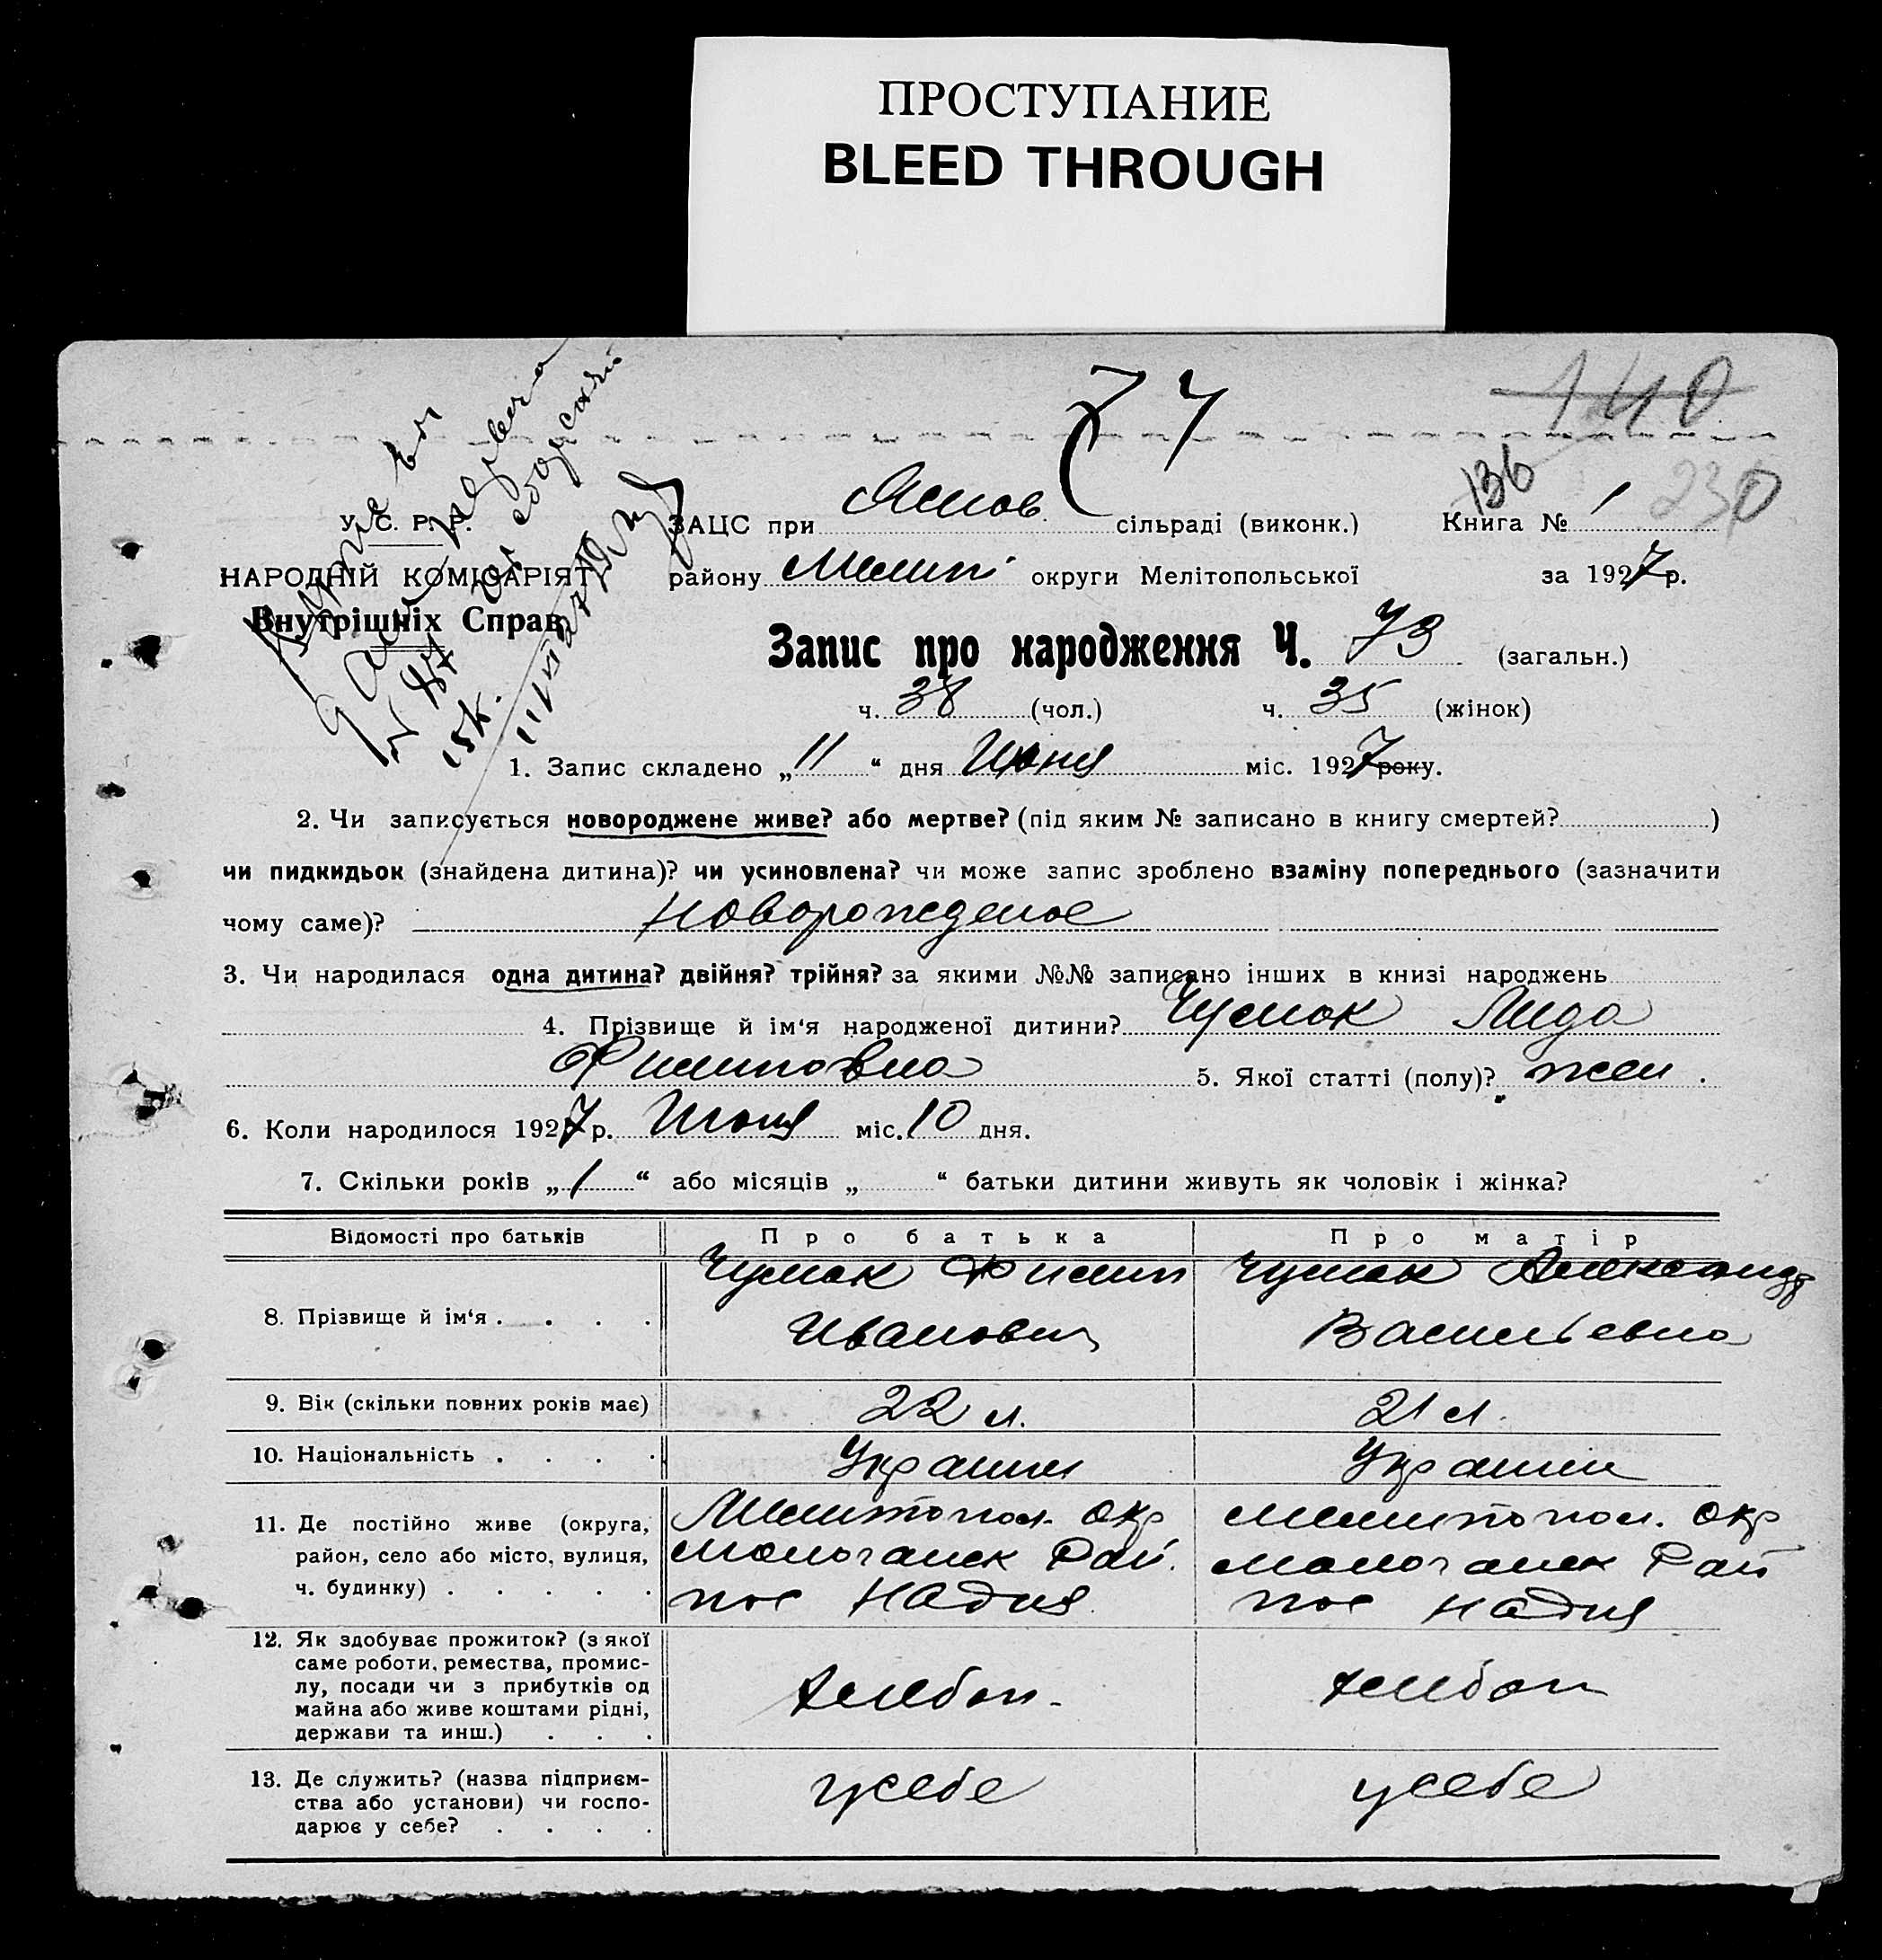 ПРОСТУПАНИЕ
BLEED THROUGH
74
140
136
230
У. С. Р. Р.
НАРОДНІЙ КОМІСАРІЯТ
Внутрішніх Справ
ЗАЦС при сільраді (виконк.) Книга № 1
району Мелит округи Мелітопольської за 1927 р.
Запис про народження Ч. 73 (загальн.)
ч. 38 (чол.) ч. 35 (жінок)
15к.
1. Запис складено „11“ дня Июня міс. 1927 року.
2. Чи записується новороджене живе? або мертве? (під яким № записано в книгу смертей? )
чи пидкидьок (знайдена дитина)? чи усиновлена? чи може запис зроблено взаміну попереднього (зазначити
чому саме)? Новорожденое
3. Чи народилася одна дитина? двійня? трійня? за якими №№ записано інших в книзі народжень
4. Прізвище й ім'я народженої дитини? Чумак Лида
Филиповна 5. Якої статті (полу)? жен.
6. Коли народилося 1927 р. Июня міс. 10 дня.
7. Скільки років „1“ або місяців „ “ батьки дитини живуть як чоловік і жінка?
Відомості про батьків Про батька Про матір
8. Прізвище й ім'я . . . . Чумак Филип Чумак Александр
Иванович Васильевна
9. Вік (скільки повних років має) 22 л. 21 л.
10. Національність . . . . Украин Украин
11. Де постійно живе (округа, Мелитопол. Окр Мелитопол. Окр
район, село або місто, вулиця, Молочанск Рай. Молочанск Рай
ч. будинку) . . . . . пос Надия пос Надия
12. Як здобуває прожиток? (з якої
саме роботи, ремества, промис-
лу, посади чи з прибутків од
майна або живе коштами рідні, хлебоп. хлебоп
держави та инш.) . . .
13. Де служить? (назва підприєм- усебе усебе
ства або установи) чи госпо-
дарює у себе? . . . .